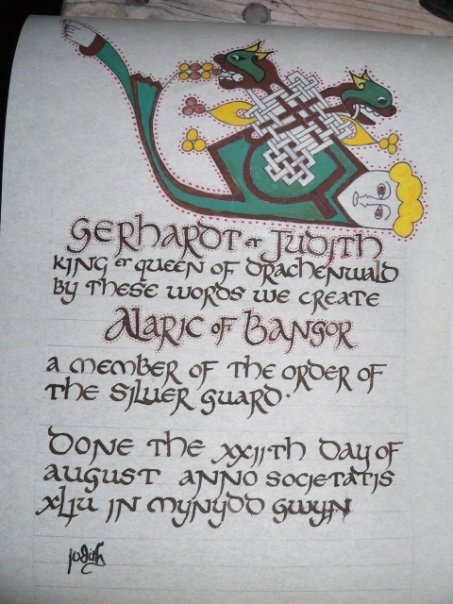 Gerhardt et Judith
King et Queen of Drachenwald
by these words we create
Alaric of Bangor
a member of the order of
the silver guard.
Done the xxiith day of
august anno societatis
xliv in mynydd gwyn
Judith